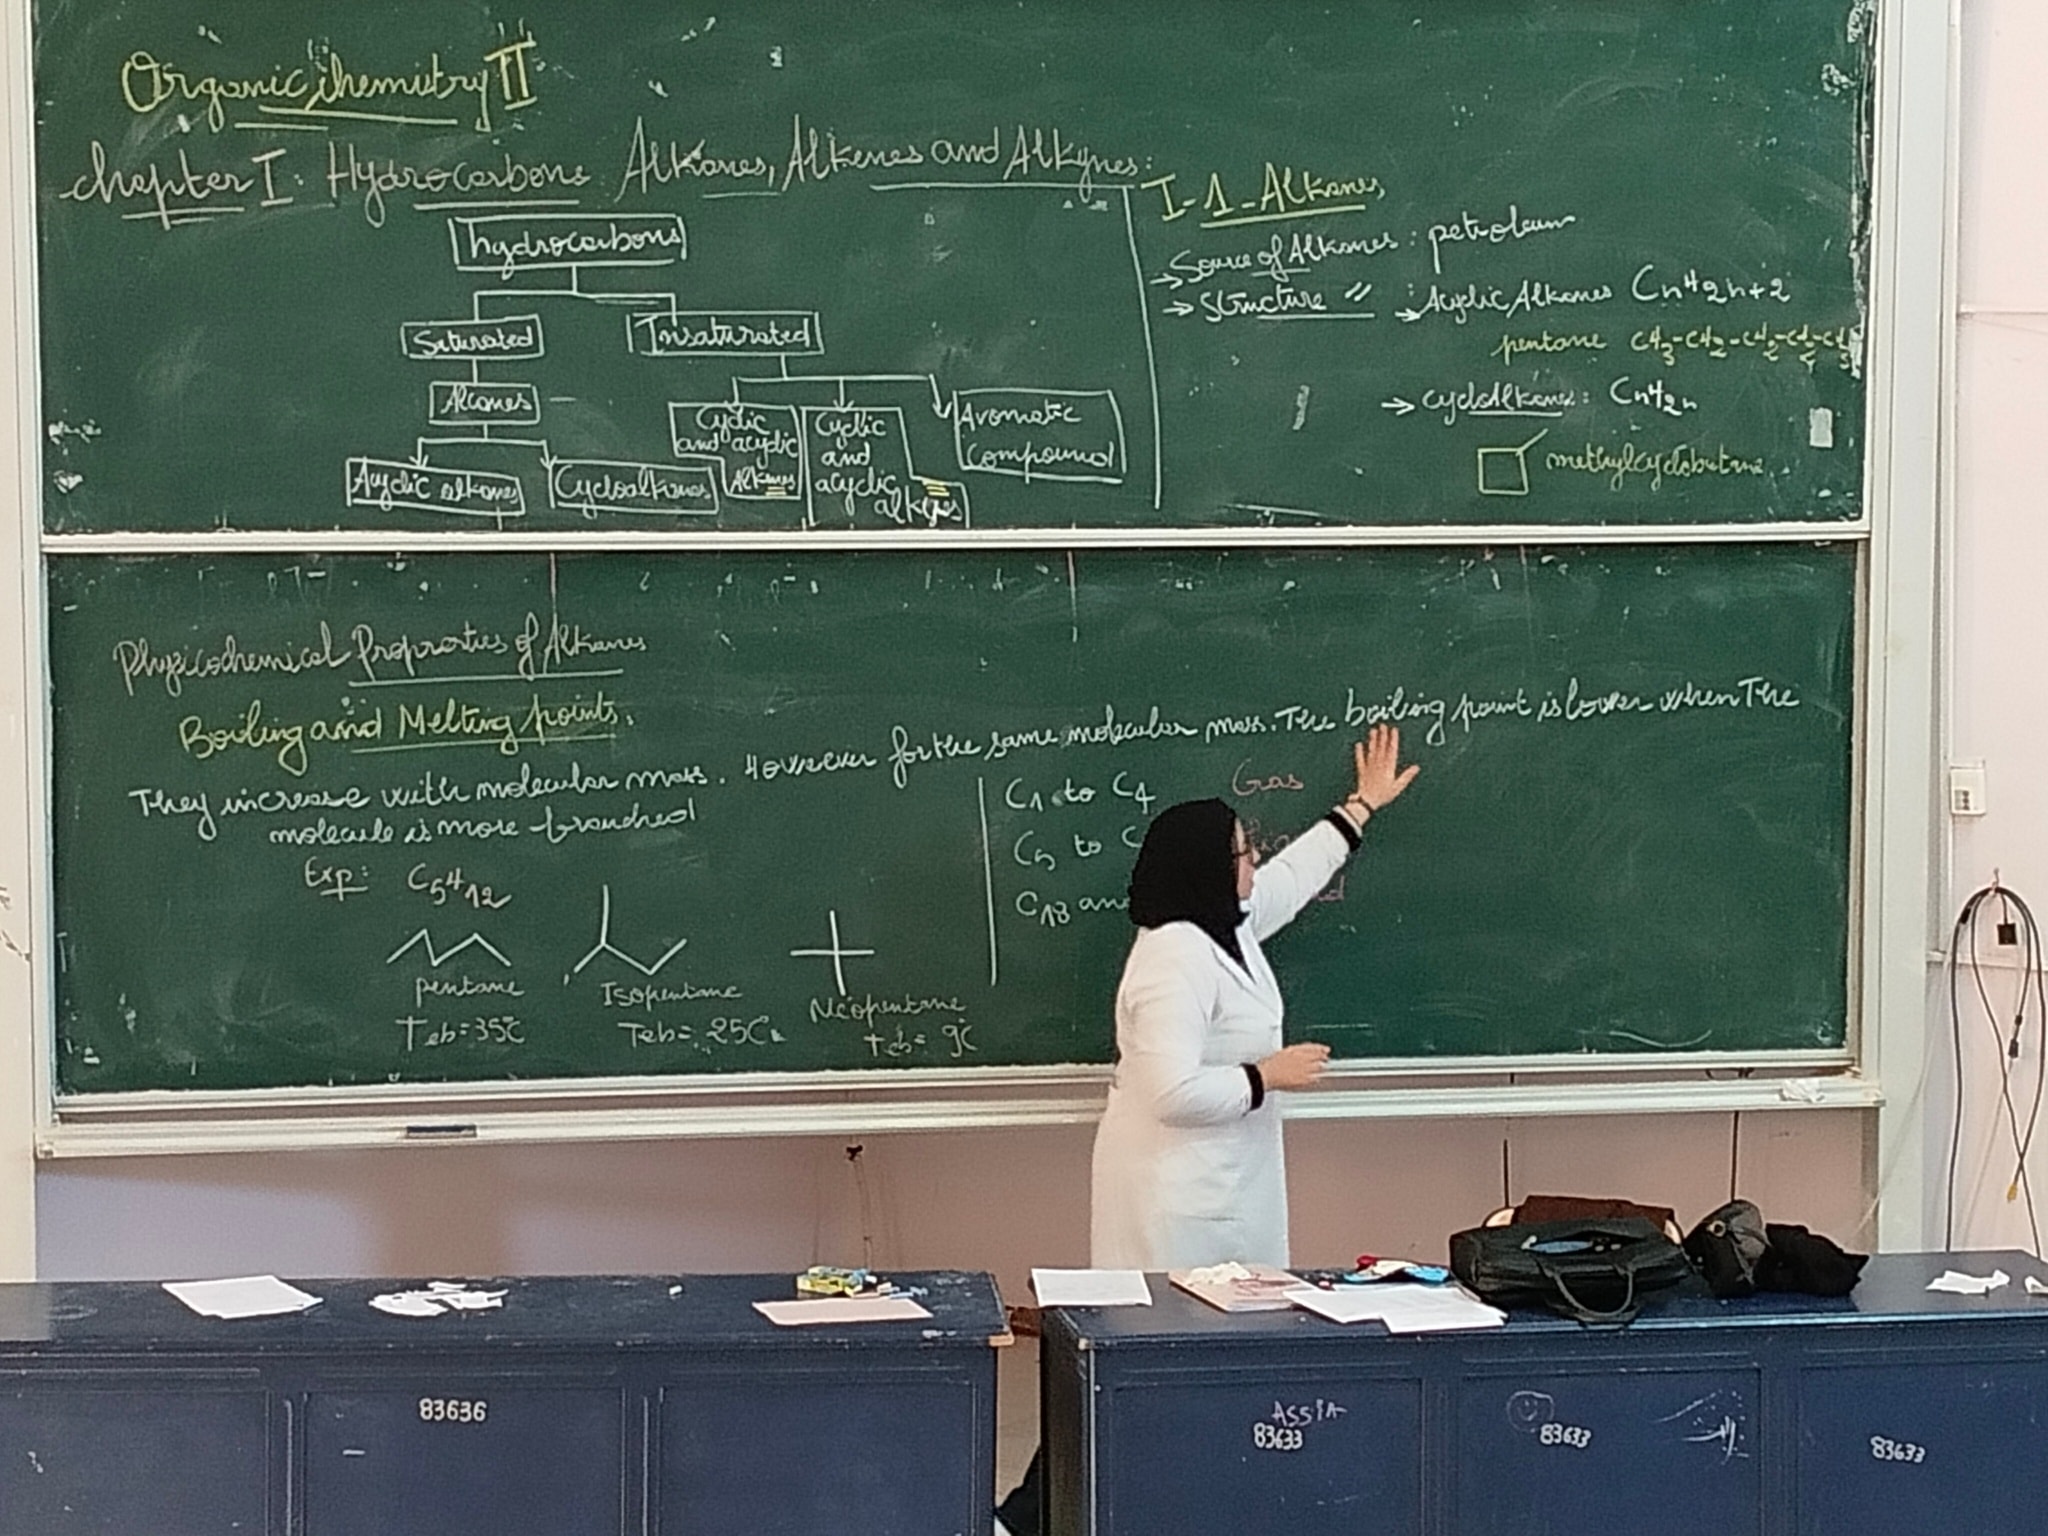 Organic chemistry II
chapter I: Hydrocarbons Alkanes, Alkenes and Alkynes:
hydrocarbons
Saturated
Insaturated
Alcanes
Cyclic and acyclic Alkenes
Cyclic and acyclic alkynes
Aromatic compound
Acyclic alkanes
Cycloalkanes
I-1-Alkanes
→ Source of Alkanes: petroleum
→ Structure " → Acyclic Alkanes CnH2n+2
pentane CH3-CH2-CH2-CH2-CH3
→ cycloAlkanes: CnH2n
methylcyclobutane
Physicochemical Proprerties of Alkanes
Boiling and Melting points.
They increase with molecular mass. However for the same molecular mass. The boiling point is lower when The
molecule is more branched
Exp: C5H12
pentane
Teb=35°C
Isopentane
Teb= 25°C
Néopentane
Teb= 9°C
C1 to C4 Gas
C5 to C
C18 and
83636
ASSIA
83633
83633
83633